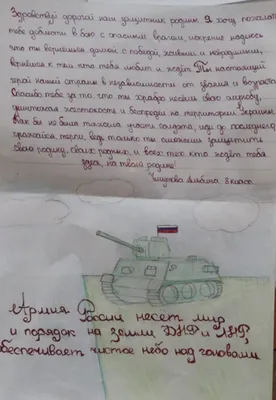 Здравствуй дорогой наш защитник родины. Я хочу пожелать
тебе добиться в бою с опасным врагом, искренне надеюсь
что ты вернёшься домой с победой, живым и невредимым,
вернёшься к тем кто тебя любит и ждёт. Ты настоящий
герой нашей страны в независимости от звания и возраста.
Спасибо тебе за то, что ты храбро несёшь свою службу,
жестокость и беспредел на территории Украины.
Как бы не была тяжела участь солдата, иди до последнего
терпи, ведь только ты сможешь защитить
свою родину, своих родных, и всех тех кто ждёт тебя
здесь, на твоей родине!
Альбина, 8 класс.
«Армия России несет мир
и порядок на земли ДНР и ЛНР,
обеспечивает чистое небо над головами